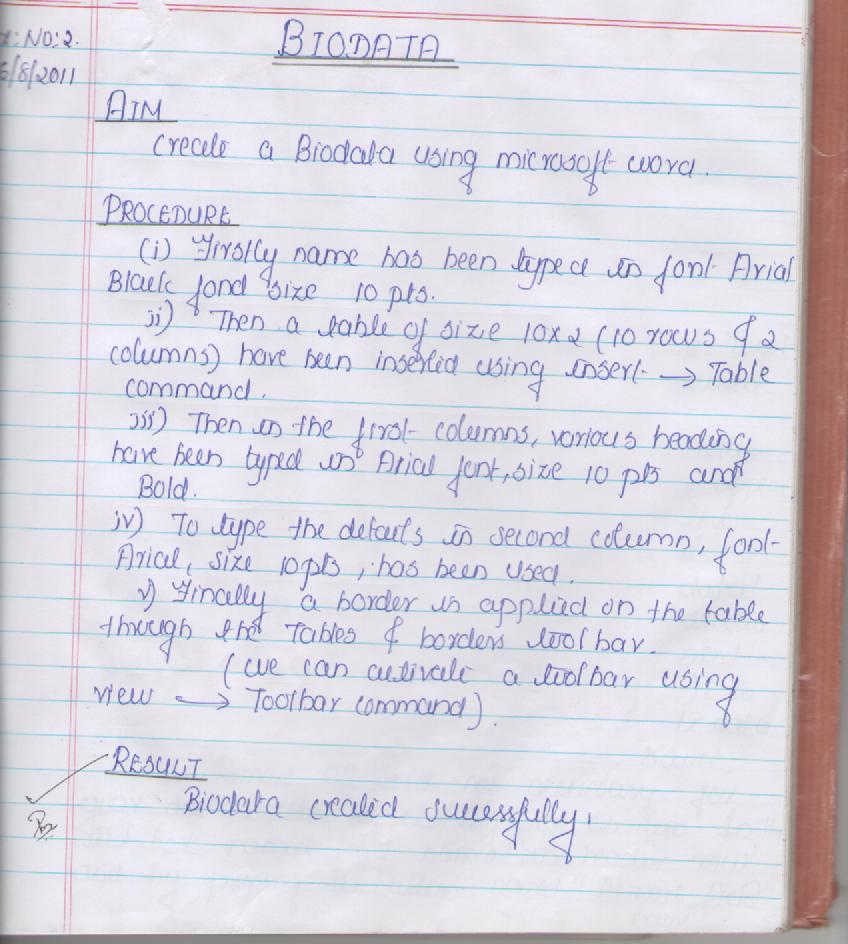 x: No: 2.
BIODATA
6/8/2011
AIM
Create a Biodata using microsoft word.
PROCEDURE
(i) Firstly name has been typed in font Arial
Black fond size 10 pts.
ii) Then a table of size 10x2 (10 rows & 2
columns) have been inserted using insert → Table
command.
iii) Then in the first columns, various heading
have been typed in Arial font, size 10 pts and
Bold.
iv) To type the details in second column, font
Arial, size 10pts, has been used.
v) Finally a border is applied on the table
through the Tables & borders toolbar.
(we can activate a toolbar using
view → Toolbar command).
RESULT
Biodata created successfully.